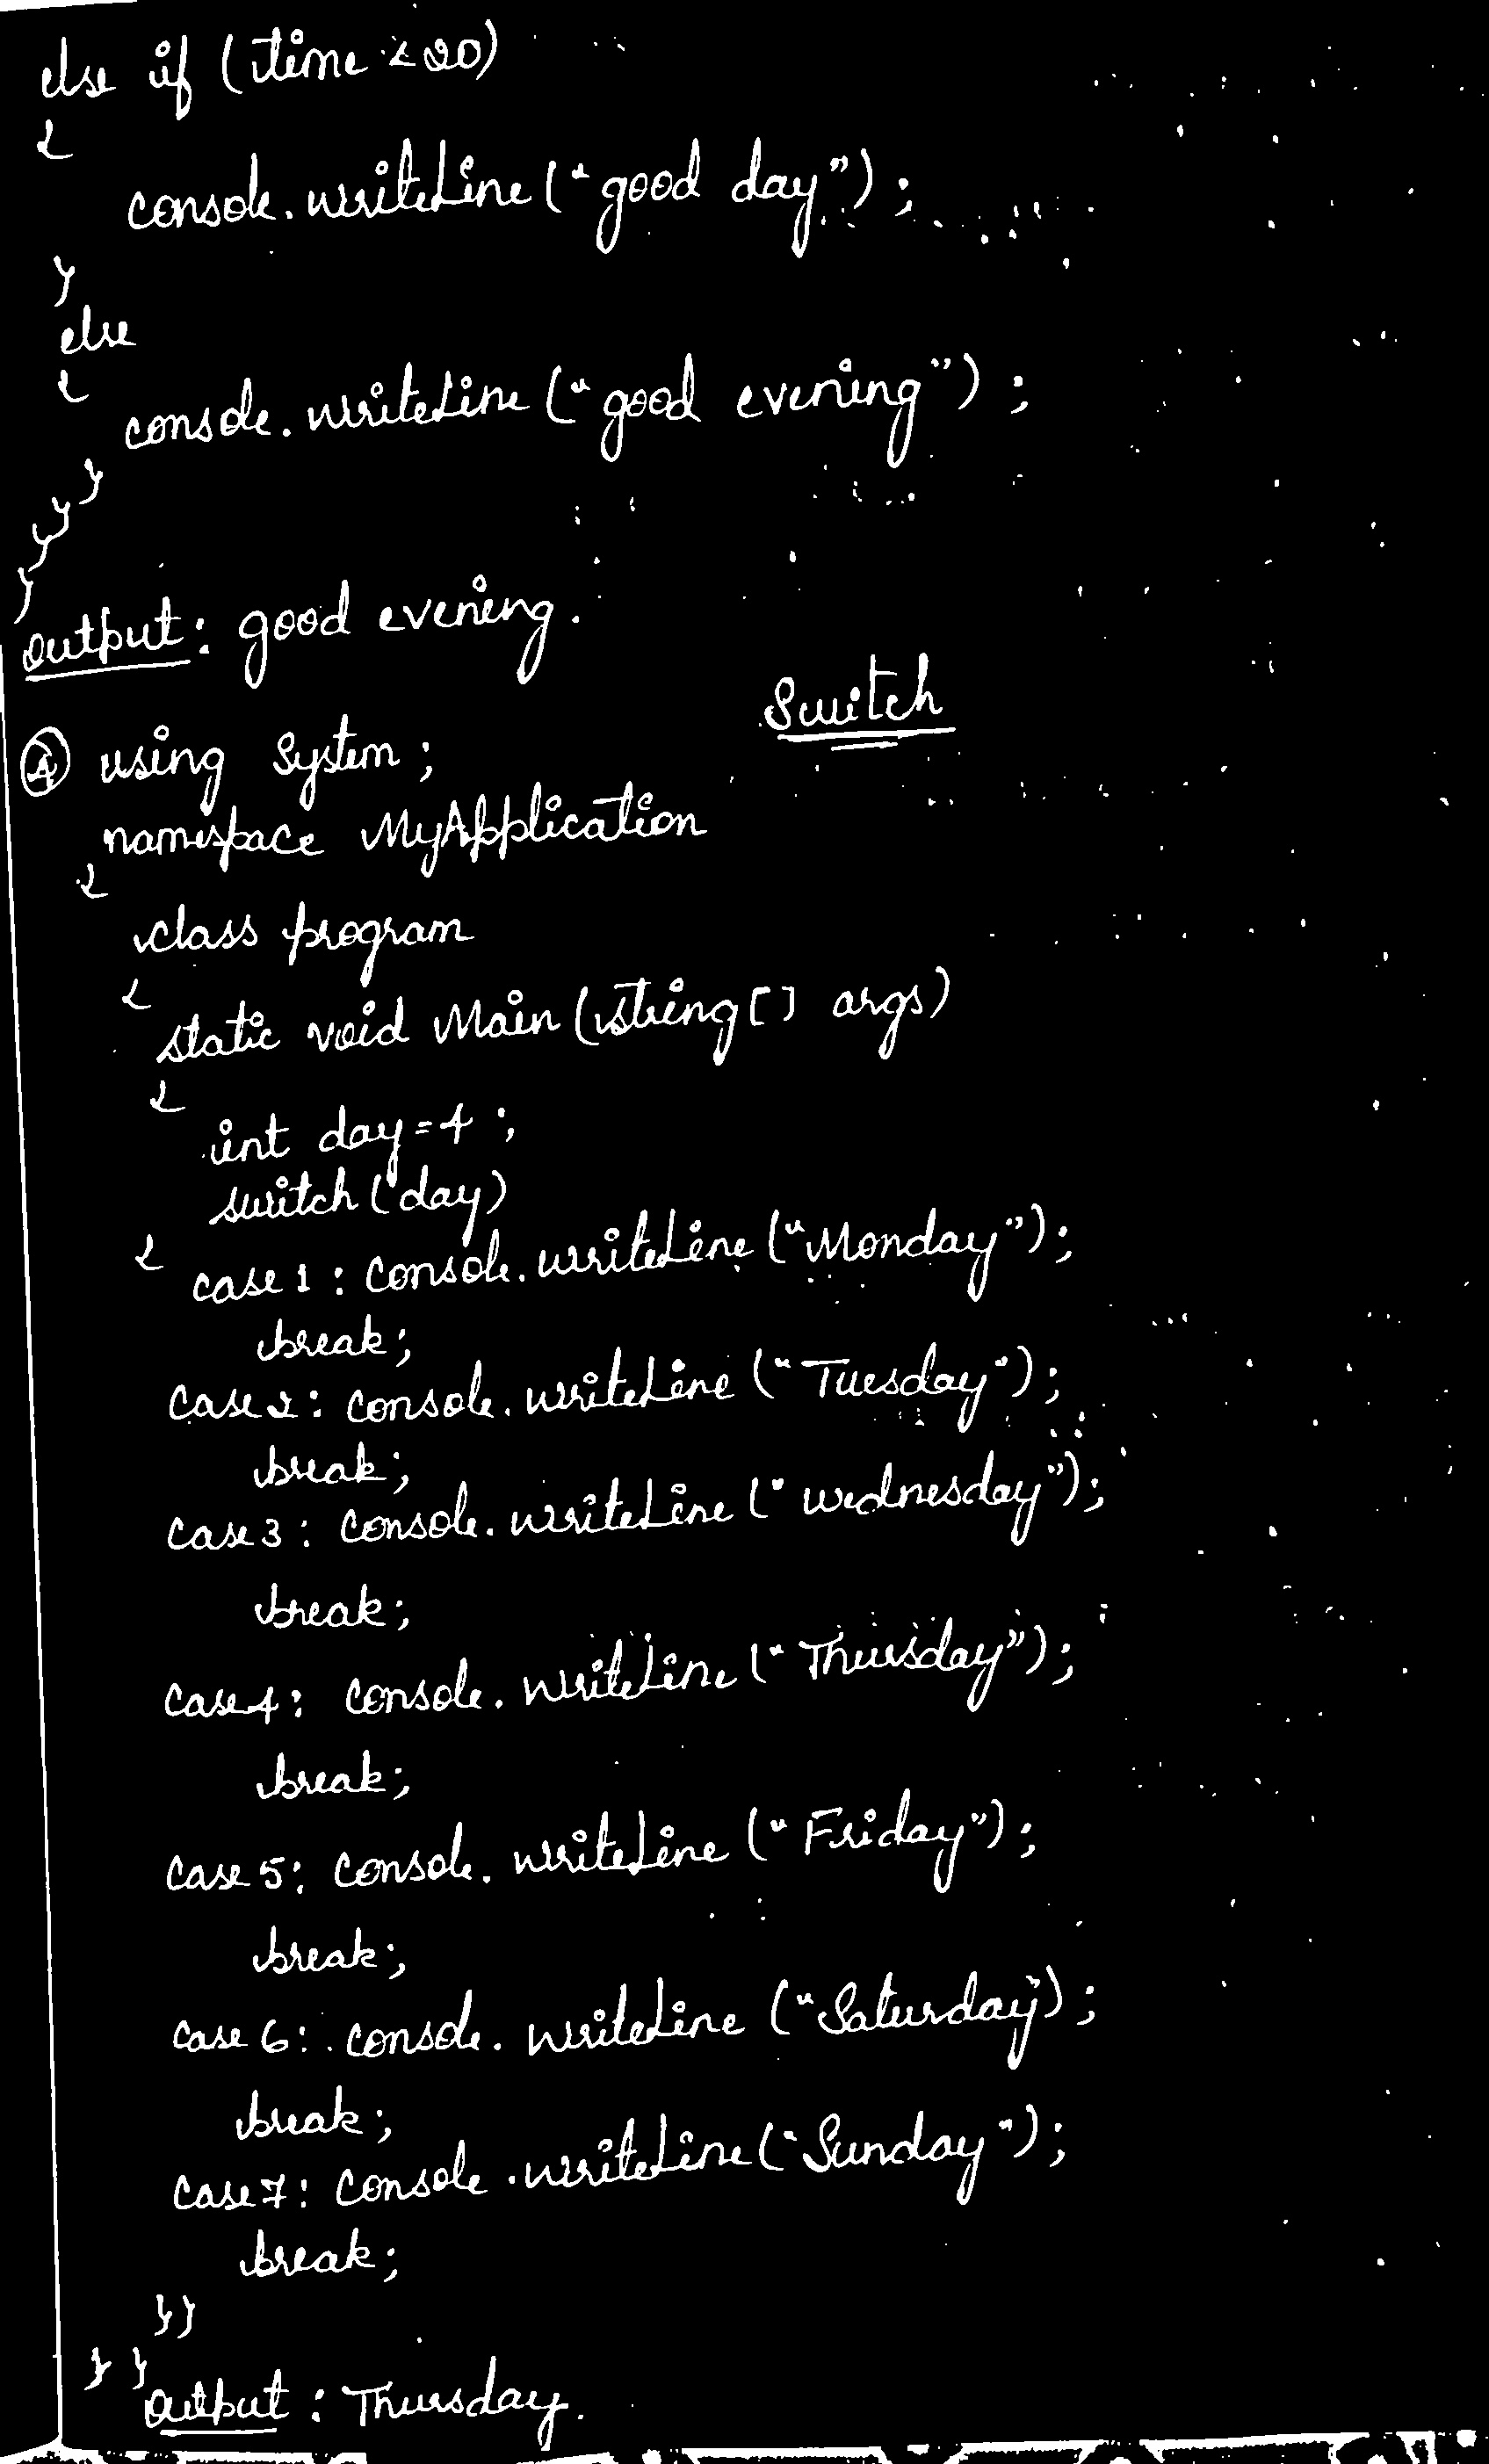 else if (time < 20)
{
console.writeLine("good day");
}
else
{
console.writeLine("good evening");
}
}
}
}
output: good evening.
Switch
④ using System;
namespace MyApplication
{
class program
{
static void Main (string[] args)
{
int day=4;
switch (day)
{
case 1: console.writeLine ("Monday");
break;
case 2: console.writeLine ("Tuesday");
break;
case 3: console.writeLine ("wednesday");
break;
case 4: console.writeLine ("Thursday");
break;
case 5: console.writeLine ("Friday");
break;
case 6: console.writeLine ("Saturday");
break;
case 7: console.writeLine ("Sunday");
break;
}}
} }
output: Thursday.